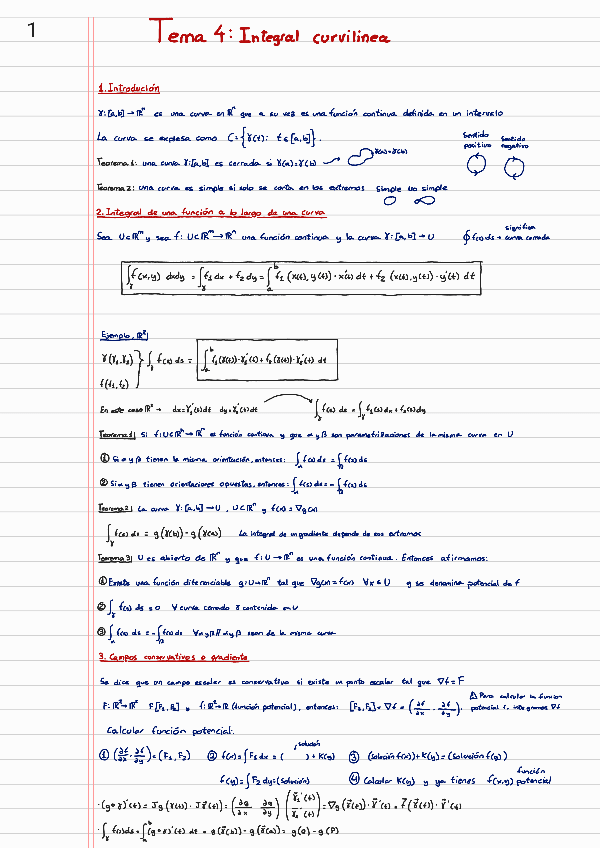 1
Tema 4: Integral curvilinea
1. Introdución
γ:[a,b] → ℝⁿ es una curva en ℝⁿ que a su vez es una función continua definida en un intervalo
La curva se expresa como C={γ(t): t∈[a,b]}.
Sentido positivo
Sentido negativo
Teorema 1: una curva γ:[a,b] es cerrada si γ(a)=γ(b) → γ(a)=γ(b)
Teorema 2: una curva es simple si solo se corta en los extremos simple no simple
2. Integral de una función a lo largo de una curva
Sea U⊂ℝⁿ y sea f: U⊂ℝⁿ→ℝⁿ una función continua y la curva γ:[a,b]→U ∮f(s)ds → significa curva cerrada
∫γ f(x,y) dxdy = ∫γ f₁ dx + f₂ dy = ∫ₐᵇ f₁ (x(t), y(t)) · x'(t) dt + f₂ (x(t), y(t)) · y'(t) dt
Ejemplo, ℝ²:
γ(γ₁,γ₂)
f(f₁,f₂)
∫γ f(s) ds = ∫ₐᵇ f₁(γ(t))·γ₁'(t) + f₂(γ(t))·γ₂'(t) dt
En este caso ℝ² → dx=γ₁'(t)dt dy=γ₂'(t)dt ∫γ f(s) ds = ∫γ f₁(s)dx + f₂(s)dy
Teorema 1: Si f:U⊂ℝⁿ→ℝⁿ es función continua y que α y β son parametrizaciones de la misma curva en U
① Si α y β tienen la misma orientación, entonces: ∫α f(s) ds = ∫β f(s) ds
② Si α y β tienen orientaciones opuestas, entonces: ∫α f(s) ds = -∫β f(s) ds
Teorema 2: La curva γ:[a,b]→U, U⊂ℝⁿ y f(x) = ∇g(x)
∫γ f(s) ds = g(γ(b)) - g(γ(a)) La integral de un gradiente depende de sus extremos
Teorema 3: U es abierto de ℝⁿ y que f:U→ℝⁿ es una función continua. Entonces afirmamos:
① Existe una función diferenciable g:U→ℝⁿ tal que ∇g(x)=f(x) ∀x∈U y se denomina potencial de f
② ∫γ f(s) ds = 0 ∀ curva cerrada γ contenida en U
③ ∫α f(s) ds = -∫β f(s) ds ∀α y β // α y β sean de la misma curva
3. Campos conservativos o gradiente
Se dice que un campo escalar es conservativo si existe un punto escalar tal que ∇f = F
F: ℝ²→ℝ² F[F₁,F₂] y f: ℝ²→ℝ (función potencial), entonces: [F₁,F₂]=∇f = (∂f/∂x, ∂f/∂y). ⚠ Para calcular la función potencial f, integramos ∇f
Calcular función potencial:
① (∂f/∂x, ∂f/∂y) = (F₁, F₂) ② f(x) = ∫F₁ dx = ( solución ) + K(y) ③ (solución f(x)) + K(y) = (solución f(y))
f(y) = ∫F₂ dy = (solución) ④ Calcular K(y) y ya tienes f(x,y) función potencial
· (g∘γ)'(t) = Jg (γ(t)) · Jγ(t) = (∂g/∂x ∂g/∂y) · (γ₁'(t) γ₂'(t)) = ∇g(γ(t)) · γ'(t) = f(γ(t)) · γ'(t)
· ∫γ f(s) ds = ∫ₐᵇ (g∘γ)'(t) dt = g(γ(b)) - g(γ(a)) = g(Q) - g(P)